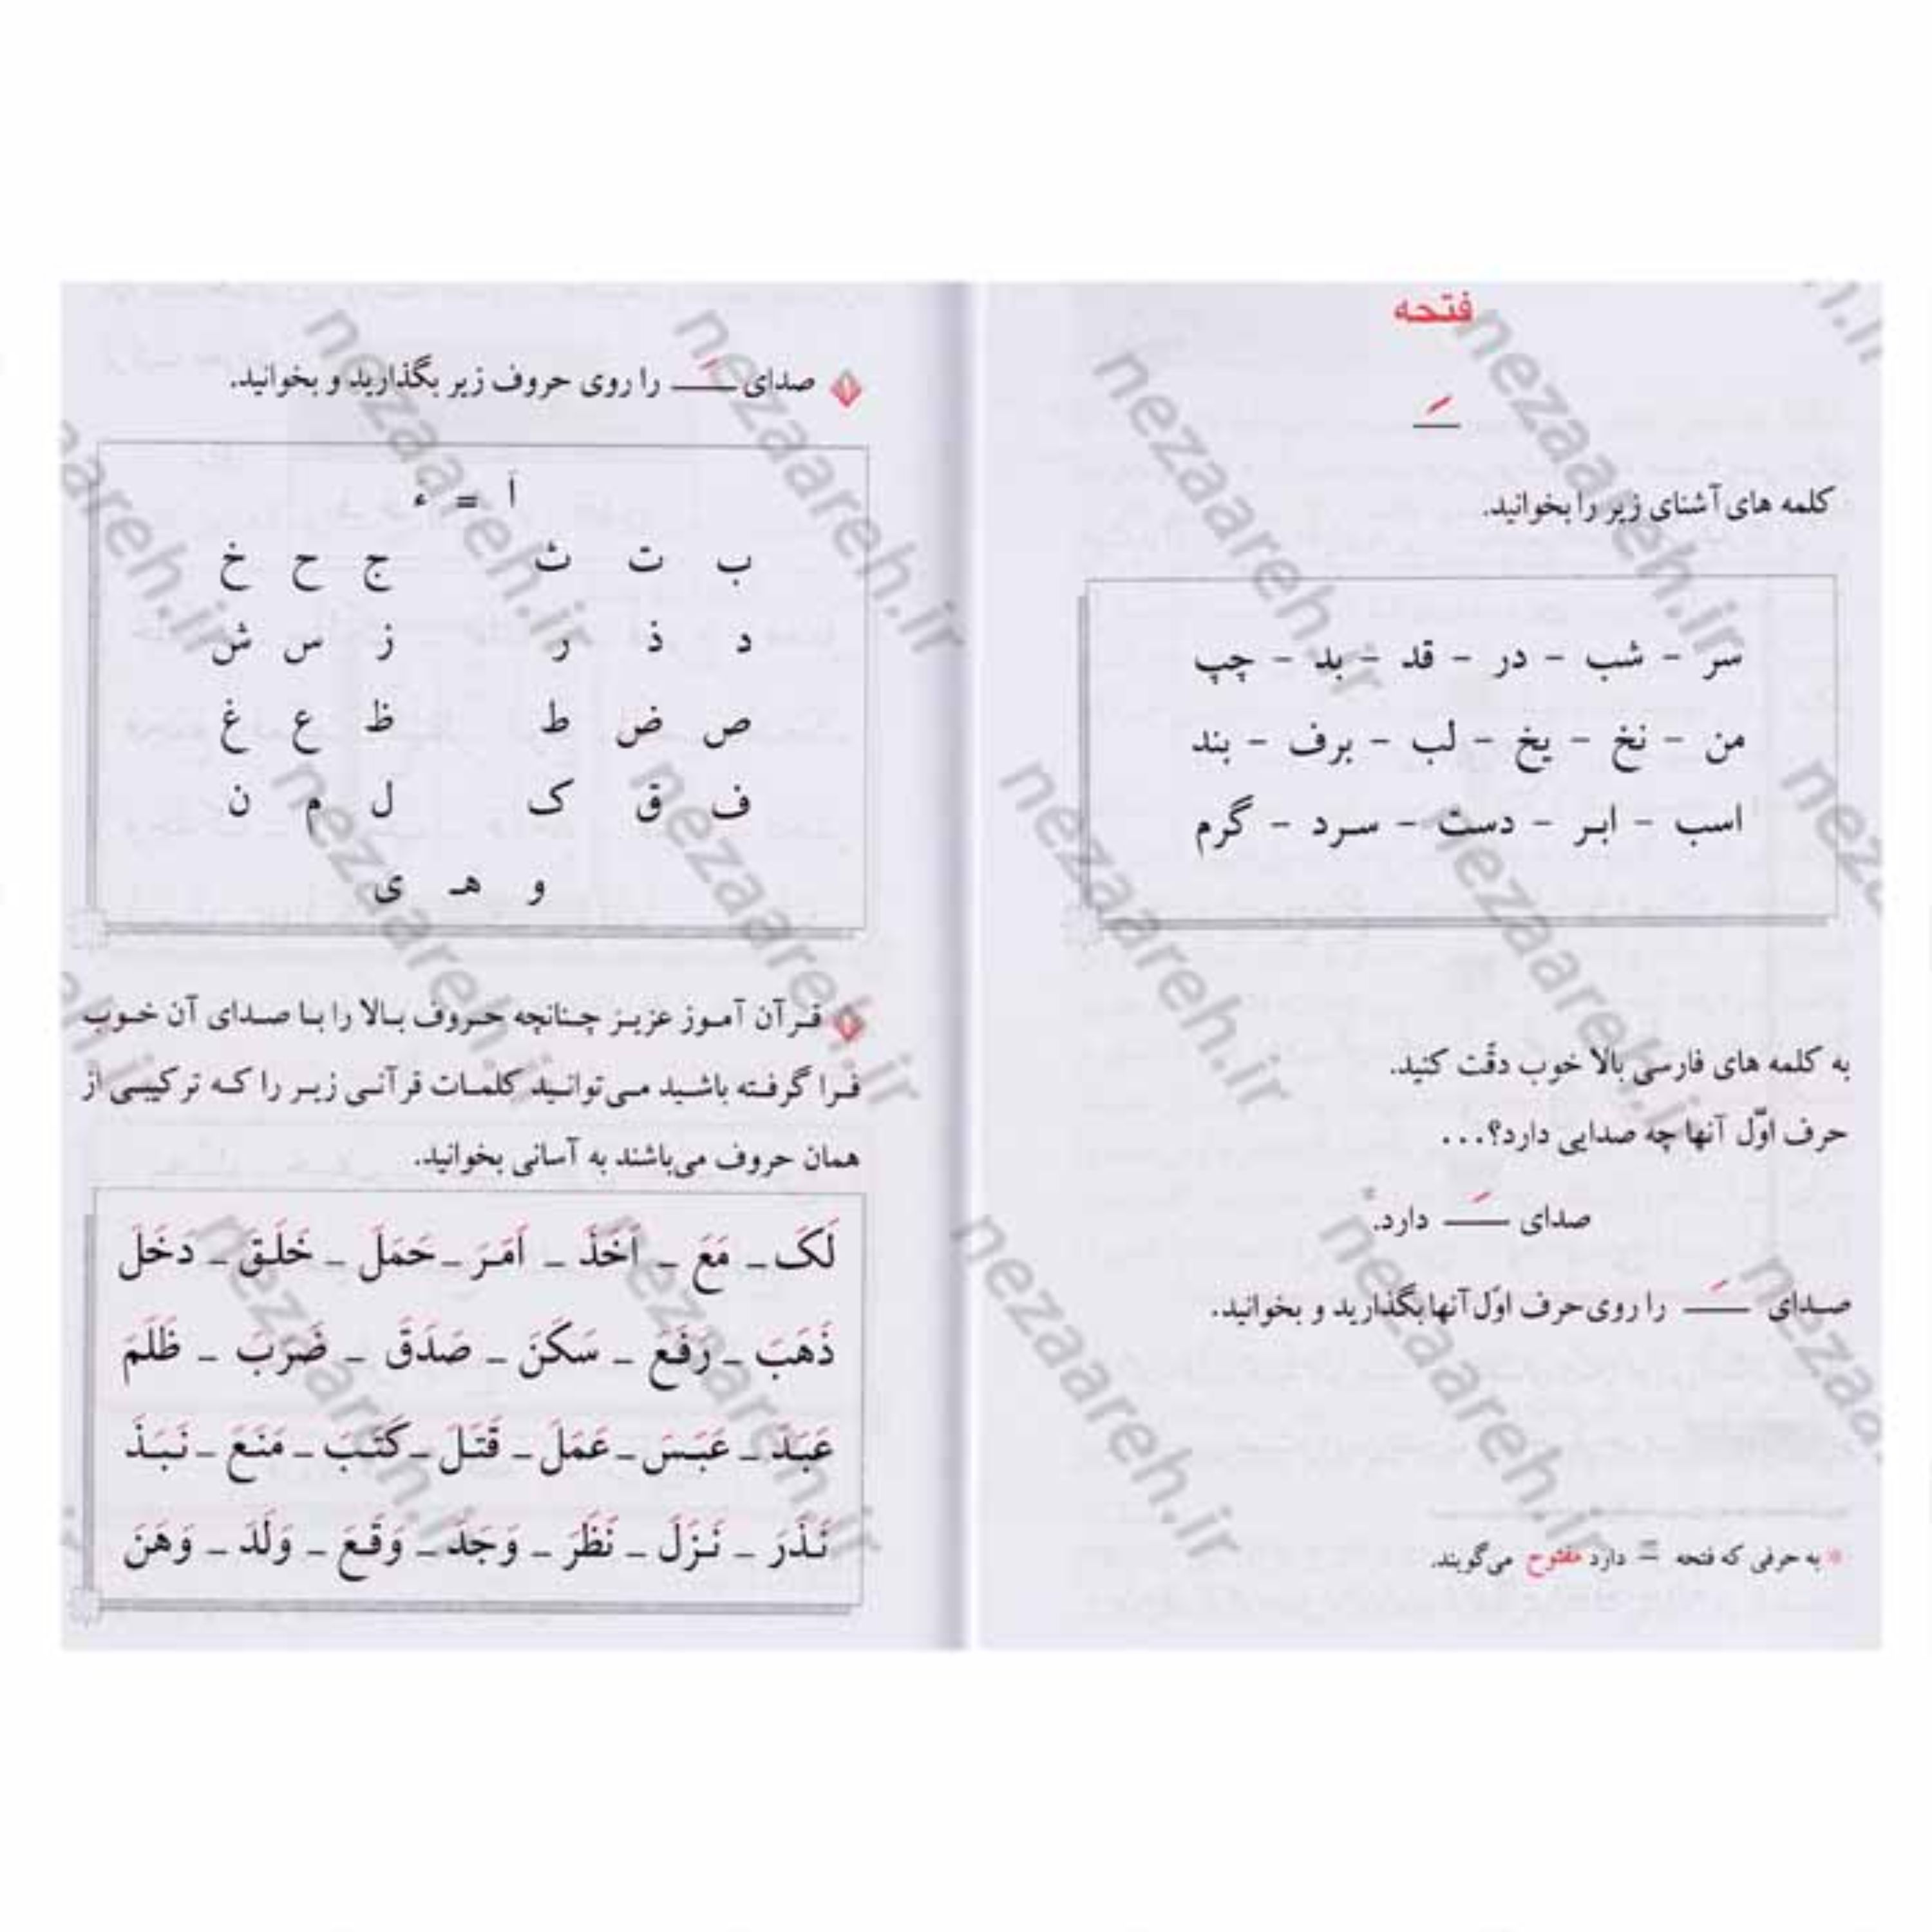 فتحه
ـَ
کلمه های آشنای زیر را بخوانید.
سر - شب - در - قد - بد - چپ
من - نخ - یخ - لب - برف - بند
اسب - ابـر - دست - سـرد - گرم
به کلمه های فارسی بالا خوب دقّت کنید.
حرف اوّل آنها چه صدایی دارد؟...
صدای ـَ دارد.*
صـدای ـَ را روی حرف اوّل آنها بگذارید و بخوانید.
* به حرفی که فتحه ـَ دارد مفتوح می‌گویند.
صدای ـَ را روی حروف زیر بگذارید و بخوانید.
أ = ء
ب ت ث ج ح خ
د ذ ر ز س ش
ص ض ط ظ ع غ
ف ق ک ل م ن
و هـ ی
قـرآن آمـوز عزیـز چـنانچه حـروف بـالا را بـا صـدای آن خـوب
فـرا گرفـته باشـید مـی‌توانـید کلمـات قرآنـی زیـر را کـه ترکیبـی از
همان حروف می‌باشند به آسانی بخوانید.
لَکَ ـ مَعَ ـ اَخَذَ ـ اَمَـرَ ـ حَمَلَ ـ خَلَـقَ ـ دَخَلَ
ذَهَبَ ـ رَفَـعَ ـ سَکَنَ ـ صَدَقَ ـ ضَرَبَ ـ ظَلَمَ
عَبَـدَ ـ عَبَـسَ ـ عَمَلَ ـ قَتَـلَ ـ کَتَـبَ ـ مَنَـعَ ـ نَـبَـذَ
نَـذَرَ ـ نَـزَلَ ـ نَظَرَ ـ وَجَدَ ـ وَقَـعَ ـ وَلَدَ ـ وَهَنَ
nezaareh.ir